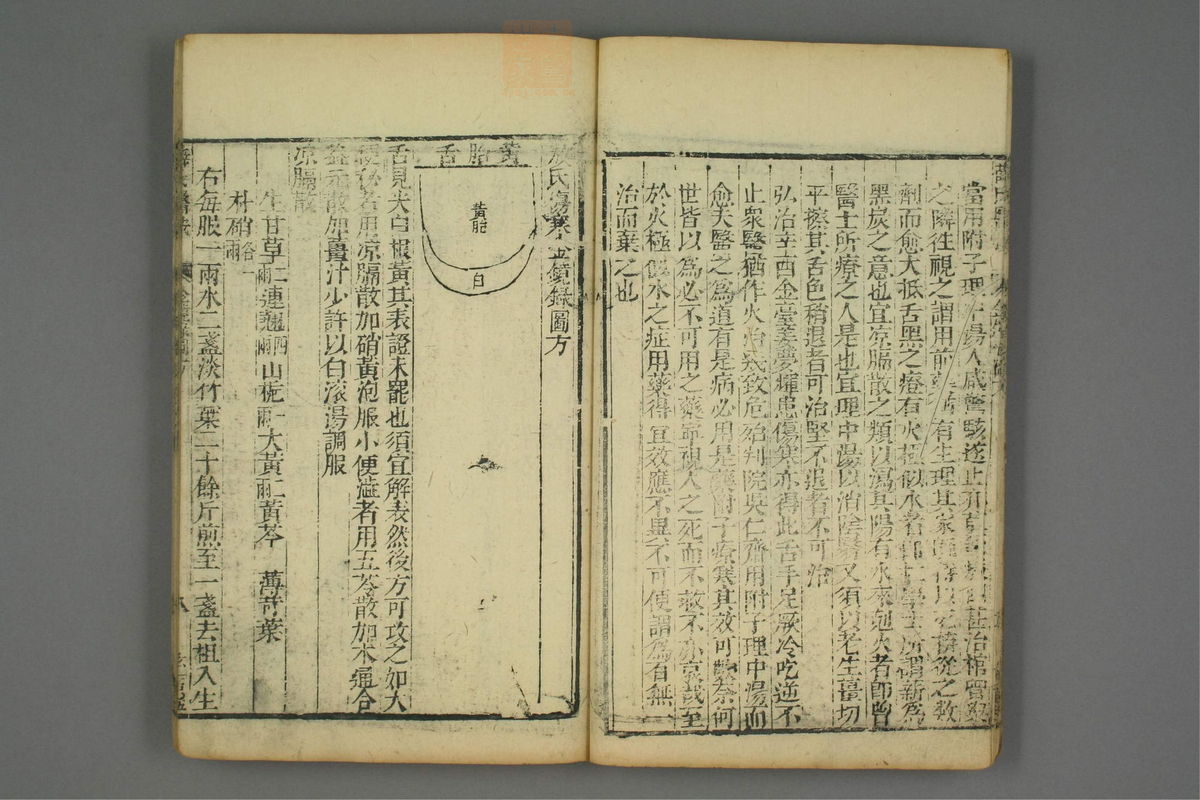 當用附子理中湯人咸驚駭遂止
之隣往視之謂用前藥有生理其家從之數
劑而愈大抵舌黑之症有火極似水者即杜學士所謂薪為
黑炭之意也宜凉膈散之類以瀉其陽有水來剋火者即曾
醫士所療之人是也宜理中湯以治陰醫又須以老生薑切
平擦其舌色稍退者可治堅不退者不可治
弘治辛酉金臺姜夢輝患傷寒亦得此舌手足厥冷吃逆不
止衆醫猶作火治幾致危殆判院吳仁齋用附子理中湯而
愈夫醫之為道有是病必用是藥附子療寒其效可數奈何
世皆以為必不可用之藥寧視人之死而不救不亦哀哉至
於火極似水之症用藥得宜效應不異不可便謂為百無一
治而棄之也
敖氏傷寒金鏡錄圖方
黃胎舌
黃胎
白
舌見尖白根黃其表證未罷也須宜解表然後方可攻之如大
便祕者用凉膈散加硝黃泡服小便澁者用五苓散加木通合
益元散加薑汁少許以白滚湯調服
凉膈散
生甘草二兩連翹四兩山梔一兩大黃二兩黃芩 薄苛葉
朴硝各一兩
右每服一兩水二盞淡竹葉二十餘斤煎至一盞去柤入生